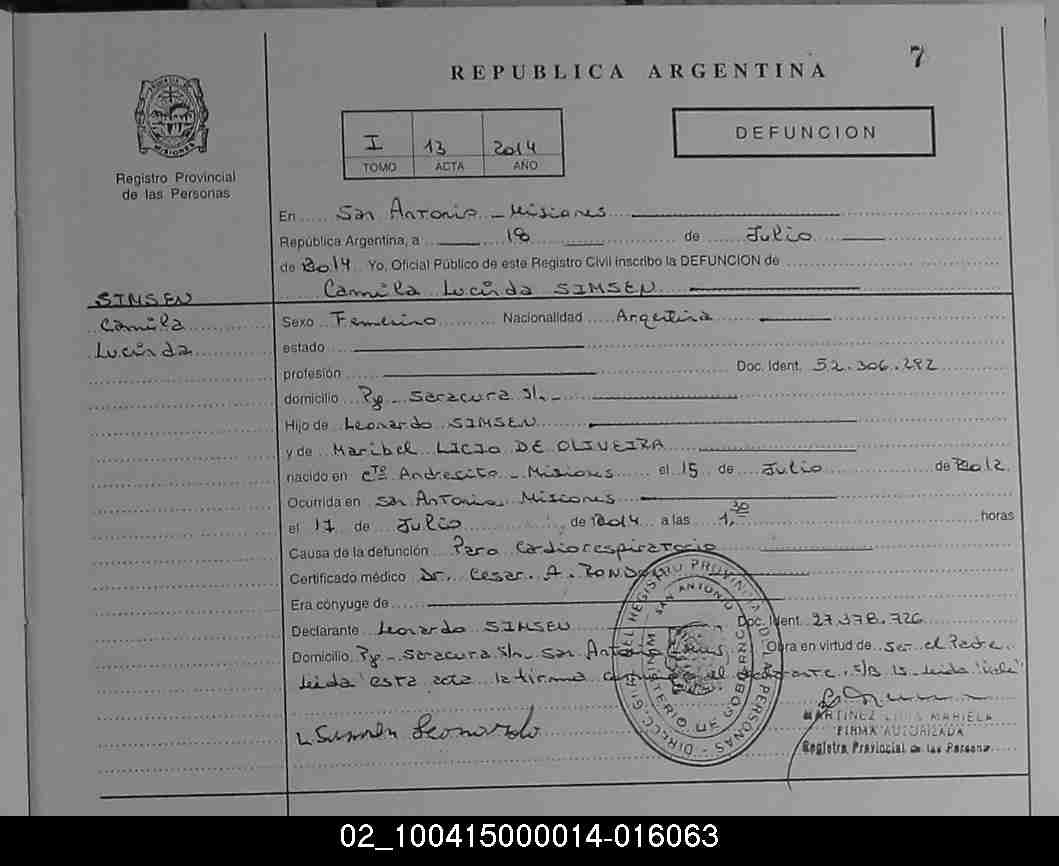 7
REPUBLICA ARGENTINA
MISIONES
Registro Provincial
de las Personas
I 13 2014
TOMO ACTA AÑO
DEFUNCION
En San Antonio - Misiones
República Argentina, a 18 de Julio
de 2014 Yo, Oficial Público de este Registro Civil inscribo la DEFUNCION de
Camila Lucinda SIMSEN
SIMSEN
Camila
Lucinda
Sexo Femenino Nacionalidad Argentina
estado
profesión Doc. Ident. 52.306.292
domicilio Pje - Saracura S/n -
Hijo de Leonardo SIMSEN
y de Maribel LICIO DE OLIVEIRA
nacido en Cte Andresito - Misiones el 15 de Julio de 2012
Ocurrida en San Antonio, Misiones
el 17 de Julio de 2014 a las 1,30 horas
Causa de la defunción Paro Cardiorespiratorio
Certificado médico Dr. Cesar. A.
Era cónyuge de
Declarante Leonardo SIMSEN Doc. Ident. 27.378.726
Domicilio Saracura S/n - San Antonio Obra en virtud de ser el Padre.
Leida esta acta la firma el declarante. S/B 15 -
Leonardo
MARTINEZ MARIELA
FIRMA AUTORIZADA
Registro Provincial de las Personas
DIREC. GRAL DEL REGISTRO PROVINCIAL DE LAS PERSONAS
SAN ANTONIO
MINISTERIO DE GOBIERNO
02_100415000014-016063